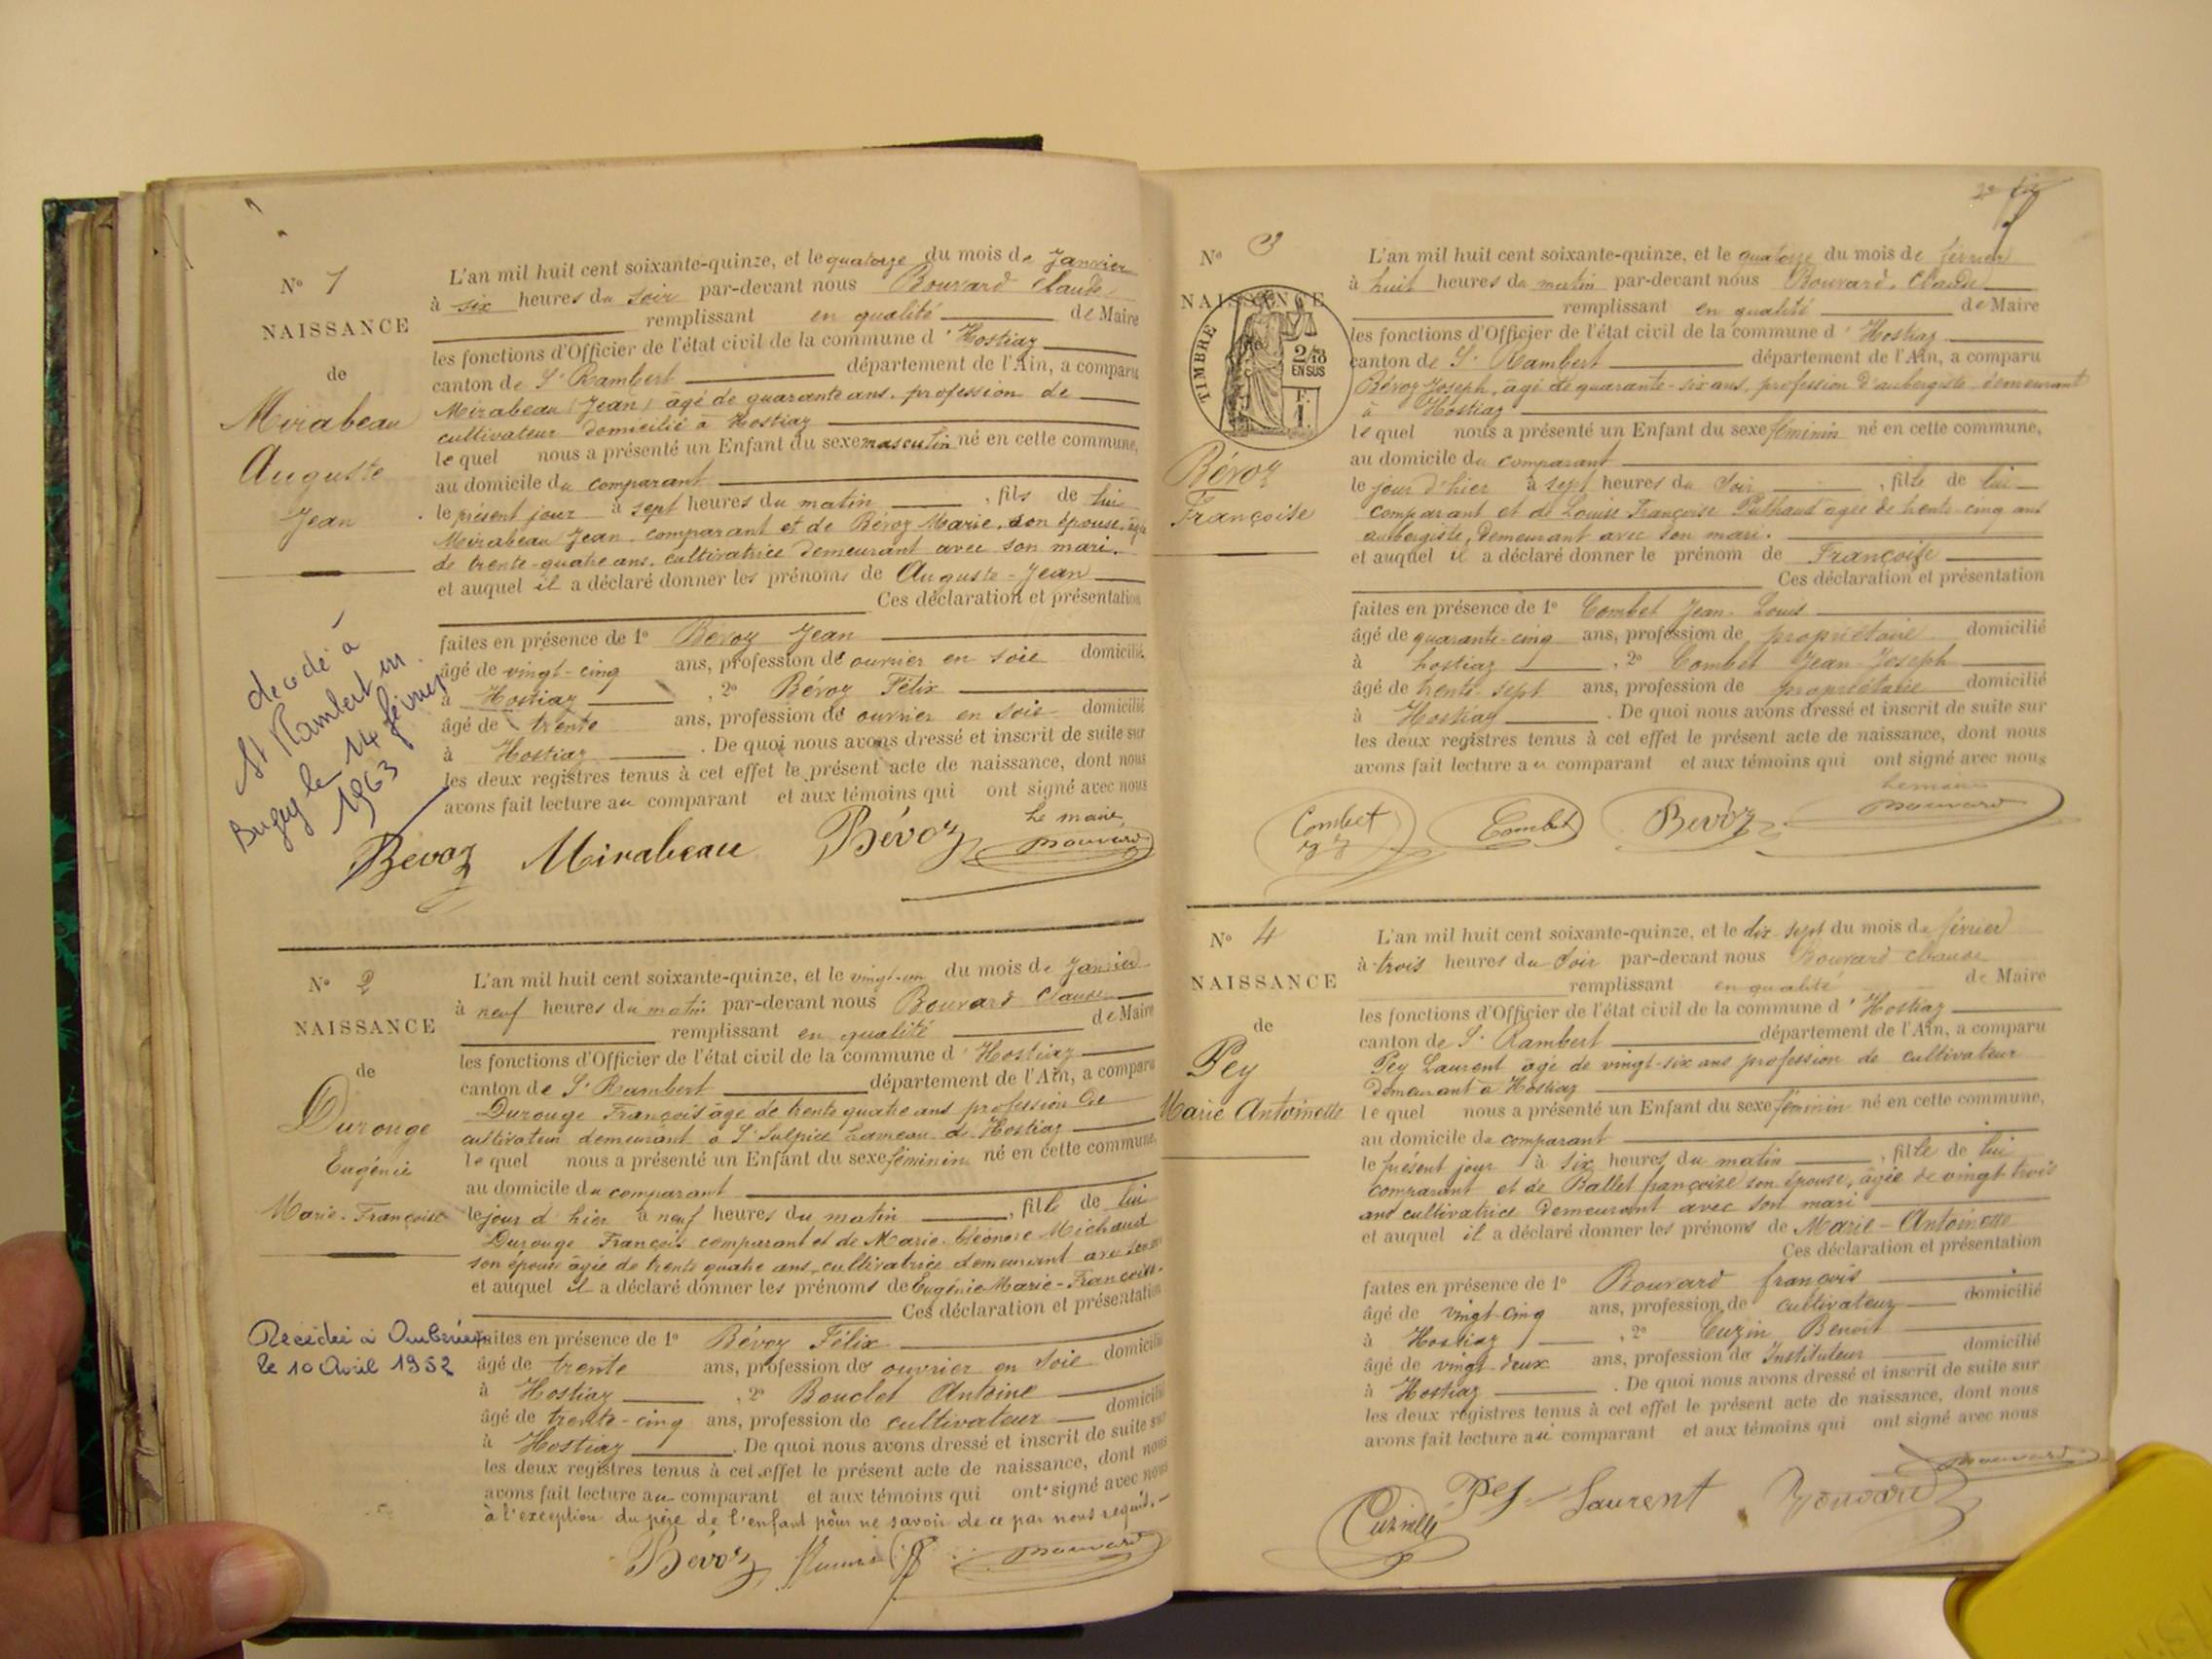 N° 1
NAISSANCE
de
Mirabeau
Auguste
Jean
décédé à
St Rambert en
Bugey le 14 février
1963
L'an mil huit cent soixante-quinze, et le quatorze du mois de Janvier
à six heures du soir par-devant nous Bouvard Claude
remplissant en qualité de Maire
les fonctions d'Officier de l'état civil de la commune d'Hostiaz
canton de St Rambert département de l'Ain, a comparu
Mirabeau (Jean) âgé de quarante ans, profession de
cultivateur domicilié à Hostiaz
lequel nous a présenté un Enfant du sexe masculin né en cette commune,
au domicile du comparant
le présent jour à sept heures du matin, fils de lui
Mirabeau Jean, comparant et de Bévoz Marie, son épouse, âgée
de trente-quatre ans, cultivatrice demeurant avec son mari.
et auquel il a déclaré donner les prénoms de Auguste-Jean
Ces déclaration et présentation
faites en présence de 1° Bévoz Jean
âgé de vingt-cinq ans, profession de ouvrier en soie domicilié
à Hostiaz, 2° Bévoz Félix
âgé de trente ans, profession de ouvrier en soie domicilié
à Hostiaz. De quoi nous avons dressé et inscrit de suite sur
les deux registres tenus à cet effet le présent acte de naissance, dont nous
avons fait lecture au comparant et aux témoins qui ont signé avec nous
Le maire
Bévoz Mirabeau Bévoz Bouvard
N° 2
NAISSANCE
de
Durouge
Eugénie
Marie-Françoise
Décédée à Ambérieu
le 10 Avril 1952
L'an mil huit cent soixante-quinze, et le vingt-un du mois de Janvier
à neuf heures du matin par-devant nous Bouvard Claude
remplissant en qualité de Maire
les fonctions d'Officier de l'état civil de la commune d'Hostiaz
canton de St Rambert département de l'Ain, a comparu
Durouge François âgé de trente quatre ans profession de
cultivateur demeurant à St Sulpice hameau d'Hostiaz
lequel nous a présenté un Enfant du sexe féminin né en cette commune,
au domicile du comparant
le jour d'hier à neuf heures du matin, fille de lui
Durouge François comparant et de Marie Eléonore Michaud
son épouse âgée de trente quatre ans, cultivatrice demeurant avec
et auquel il a déclaré donner les prénoms de Eugénie Marie-Françoise.
Ces déclaration et présentation
faites en présence de 1° Bévoz Félix
âgé de trente ans, profession de ouvrier en soie domicilié
à Hostiaz, 2° Bouclet Antoine
âgé de trente-cinq ans, profession de cultivateur domicilié
à Hostiaz. De quoi nous avons dressé et inscrit de suite sur
les deux registres tenus à cet effet le présent acte de naissance, dont nous
avons fait lecture au comparant et aux témoins qui ont signé avec nous
à l'exception du père de l'enfant pour ne savoir de ce par nous requis.
Bévoz Bouvard
N° 3
NAISSANCE
TIMBRE
2/10
EN SUS
F.
1.
Bévoz
Françoise
L'an mil huit cent soixante-quinze, et le quatorze du mois de février
à huit heures du matin par-devant nous Bouvard, Claude
remplissant en qualité de Maire
les fonctions d'Officier de l'état civil de la commune d'Hostiaz
canton de St Rambert département de l'Ain, a comparu
Bévoz Joseph, âgé de quarante-six ans, profession d'aubergiste demeurant
à Hostiaz
lequel nous a présenté un Enfant du sexe féminin né en cette commune,
au domicile du comparant
le jour d'hier à sept heures du soir, fille de lui
comparant et de Louise Françoise âgée de trente cinq ans
aubergiste, demeurant avec son mari.
et auquel il a déclaré donner le prénom de Françoise
Ces déclaration et présentation
faites en présence de 1° Combet Jean-Louis
âgé de quarante-cinq ans, profession de propriétaire domicilié
à hostiaz, 2° Combet Jean-Joseph
âgé de trente-sept ans, profession de propriétaire domicilié
à Hostiaz. De quoi nous avons dressé et inscrit de suite sur
les deux registres tenus à cet effet le présent acte de naissance, dont nous
avons fait lecture au comparant et aux témoins qui ont signé avec nous
Le maire
Combet Combet Bévoz Bouvard
N° 4
NAISSANCE
de
Pey
Marie Antoinette
L'an mil huit cent soixante-quinze, et le dix-sept du mois de février
à trois heures du soir par-devant nous Bouvard Claude
remplissant en qualité de Maire
les fonctions d'Officier de l'état civil de la commune d'Hostiaz
canton de St Rambert département de l'Ain, a comparu
Pey Laurent âgé de vingt-six ans profession de cultivateur
demeurant à Hostiaz
lequel nous a présenté un Enfant du sexe féminin né en cette commune,
au domicile du comparant
le présent jour à six heures du matin, fille de lui
comparant et de Ballet françoise son épouse, âgée de vingt trois
ans cultivatrice demeurant avec son mari
et auquel il a déclaré donner les prénoms de Marie-Antoinette
Ces déclaration et présentation
faites en présence de 1° Bouvard françois
âgé de vingt-cinq ans, profession de cultivateur domicilié
à Hostiaz, 2° Cuzin Benoit
âgé de vingt-deux ans, profession de Instituteur domicilié
à Hostiaz. De quoi nous avons dressé et inscrit de suite sur
les deux registres tenus à cet effet le présent acte de naissance, dont nous
avons fait lecture au comparant et aux témoins qui ont signé avec nous
Bouvard
Cuzin Pey Laurent Bouvard